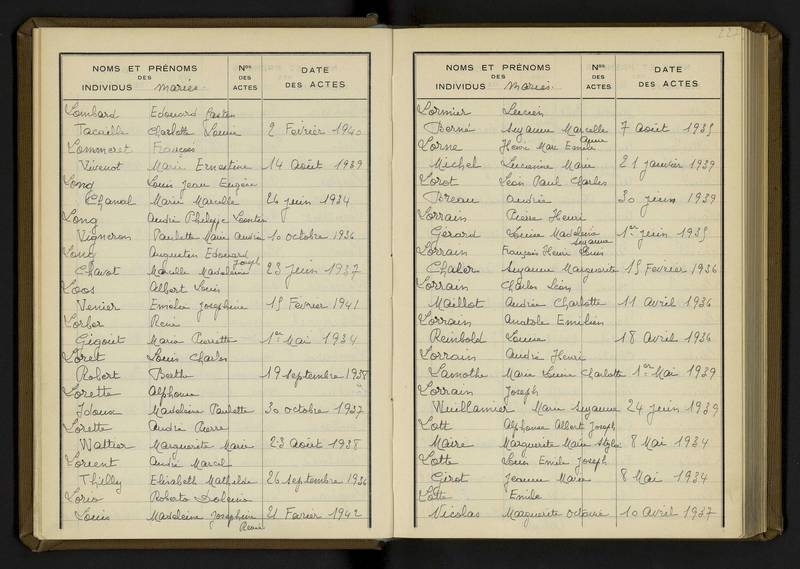 NOMS ET PRÉNOMS DES INDIVIDUS mariés. Nos DES ACTES DATE DES ACTES
Lombard Edouard Gaston
Tacaille Charlotte Louise 2 Février 1940
Lommeret François
Vivenot Marie Ernestine 14 Août 1939
Long Louis Jean Eugène
Chanal Marie Marcelle 26 juin 1934
Long André Philippe Léontin
Vigneron Paulette Marie Andrée 10 octobre 1936
Long Augustin Edouard Joseph
Chavot Marcelle Madeleine 23 Juin 1937
Loos Albert Louis
Venier Emélie Joséphine 15 Février 1941
Lorber René
Gigout Maria Pierrette 1er Mai 1934
Loret Louis Charles
Robert Berthe 19 septembre 1938
Lorette Alphonse
Idoux Madeleine Paulette 30 octobre 1937
Lorette André Pierre
Waltier Marguerite Marie 23 Août 1938
Lorient André Marcel
Thilly Elisabeth Mathilde 26 septembre 1936
Lorio Roberto
Louis Madeleine Joséphine Renée 21 Février 1942
227
NOMS ET PRÉNOMS DES INDIVIDUS mariés. Nos DES ACTES DATE DES ACTES
Lormier Lucien
Berné Suzanne Marcelle 7 août 1935
Lorne Henri Marc Emile
Michel Lucienne Marie 21 janvier 1939
Lorot Léon Paul Charles
Moreau Andrée 30 juin 1939
Lorrain Pierre Henri
Gérard Louise Madeleine Suzanne 1er juin 1935
Lorrain François Henri Louis
Chaler Suzanne Marguerite 15 Février 1936
Lorrain Charles Léon
Maillot Andrée Charlotte 11 Avril 1936
Lorrain Anatole Emilien
Reinbold Louise 18 Avril 1936
Lorrain André Henri
Lamothe Marie Louise Charlotte 1er Mai 1939
Lorrain Joseph
Vuillamier Marie Suzanne 24 juin 1939
Lott Alphonse Albert Joseph
Maire Marguerite Marie 8 Mai 1934
Lotte Louis Emile Joseph
Girot Jeanne Marie 8 Mai 1934
Lotte Emile
Nicolas Marguerite Octavie 10 Avril 1937